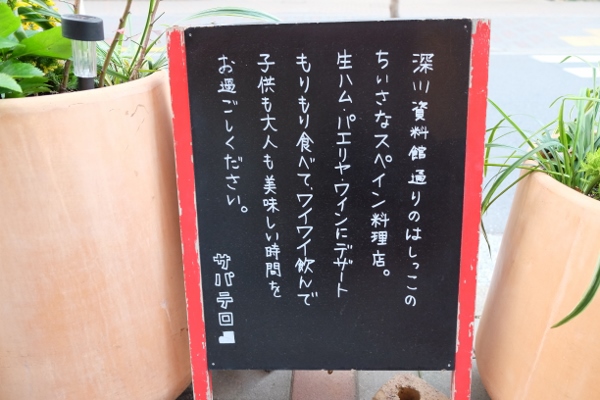 深川資料館通りのはしっこの
ちいさなスペイン料理店。
生ハム・パエリヤ・ワインにデザート
もりもり食べて、ワイワイ飲んで
子供も大人も美味しい時間を
お過ごしください。
サパテロ